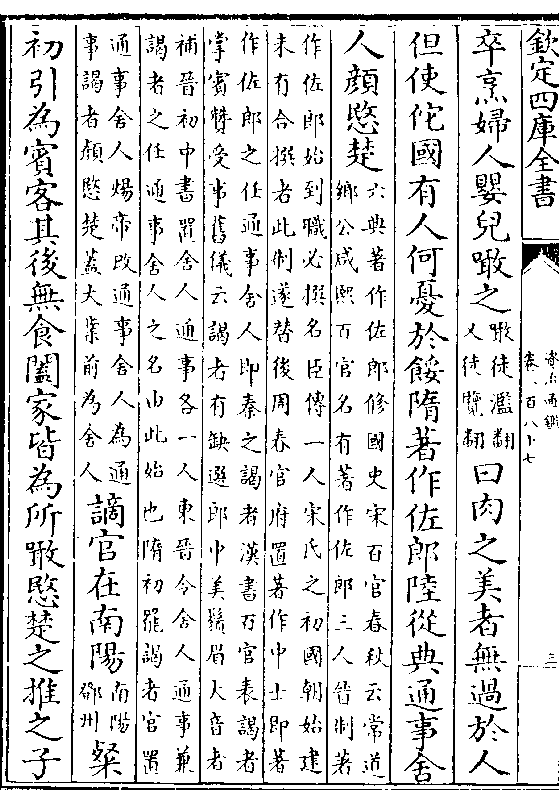 欽定四庫全書
資治通鑑
卷一百八十七
三
卒烹婦人嬰兒噉之噉徒濫翻又徒覽翻曰肉之美者無過於人
但使佗國有人何憂於餒隋著作佐郎陸從典通事舍
人顔愍楚六典著作佐郎修國史宋百官春秋云常道
鄉公咸熙百官名有著作佐郎三人晉制著
作佐郎始到職必撰名臣傳一人宋氏之初國朝始建
未有合撰者此制遂替後周春官府置著作中士即著
作佐郎之任通事舍人即秦之謁者漢書百官表謁者
掌賓贊受事舊儀云謁者有缺選郎中美鬚眉大音者
補晉初中書置舍人通事各一人東晉令舍人通事兼
謁者之任通事舍人之名由此始也隋初罷謁者官置
通事舍人煬帝改通事舍人為通
事謁者顔愍楚蓋大業前為舍人謫官在南陽南陽鄧州粲
初引為賓客其後無食闔家皆為所噉愍楚之推之子